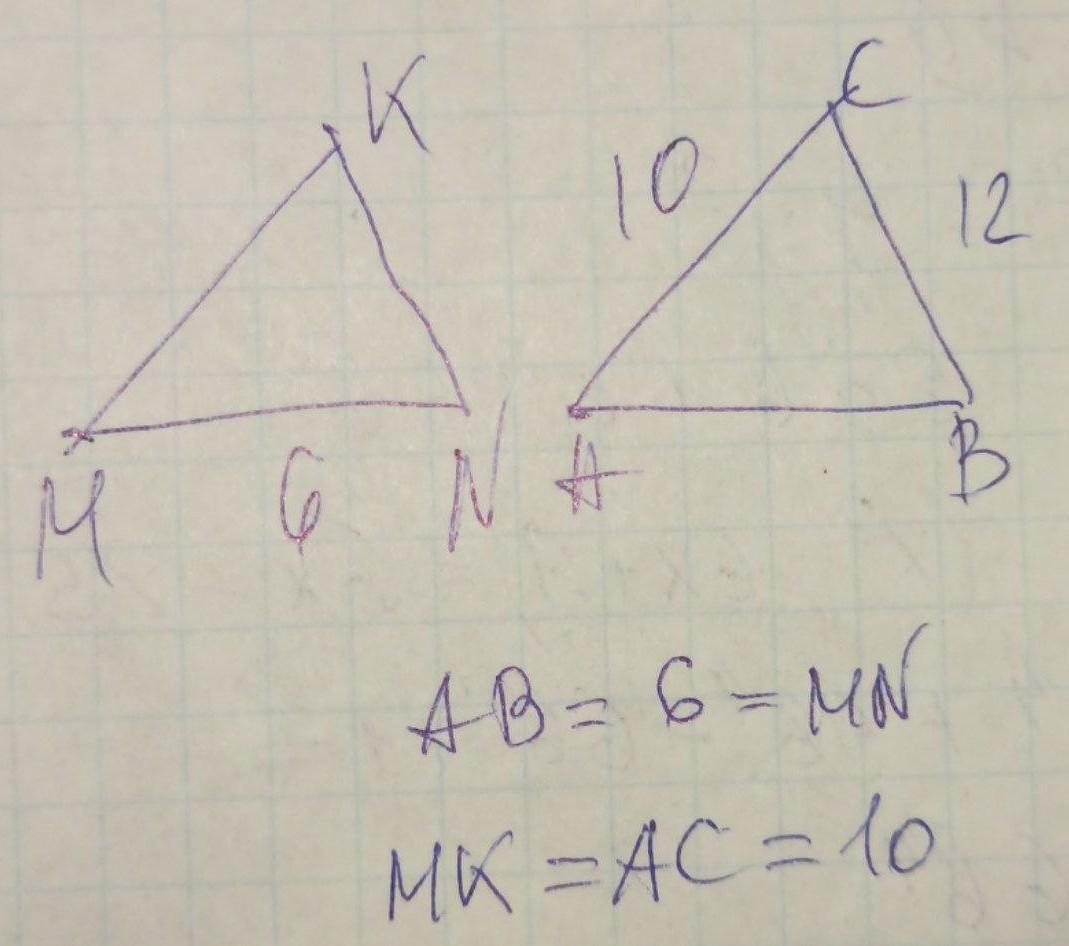 K
C
10
12
M
6
N
A
B
AB = 6 = MN
MK = AC = 10